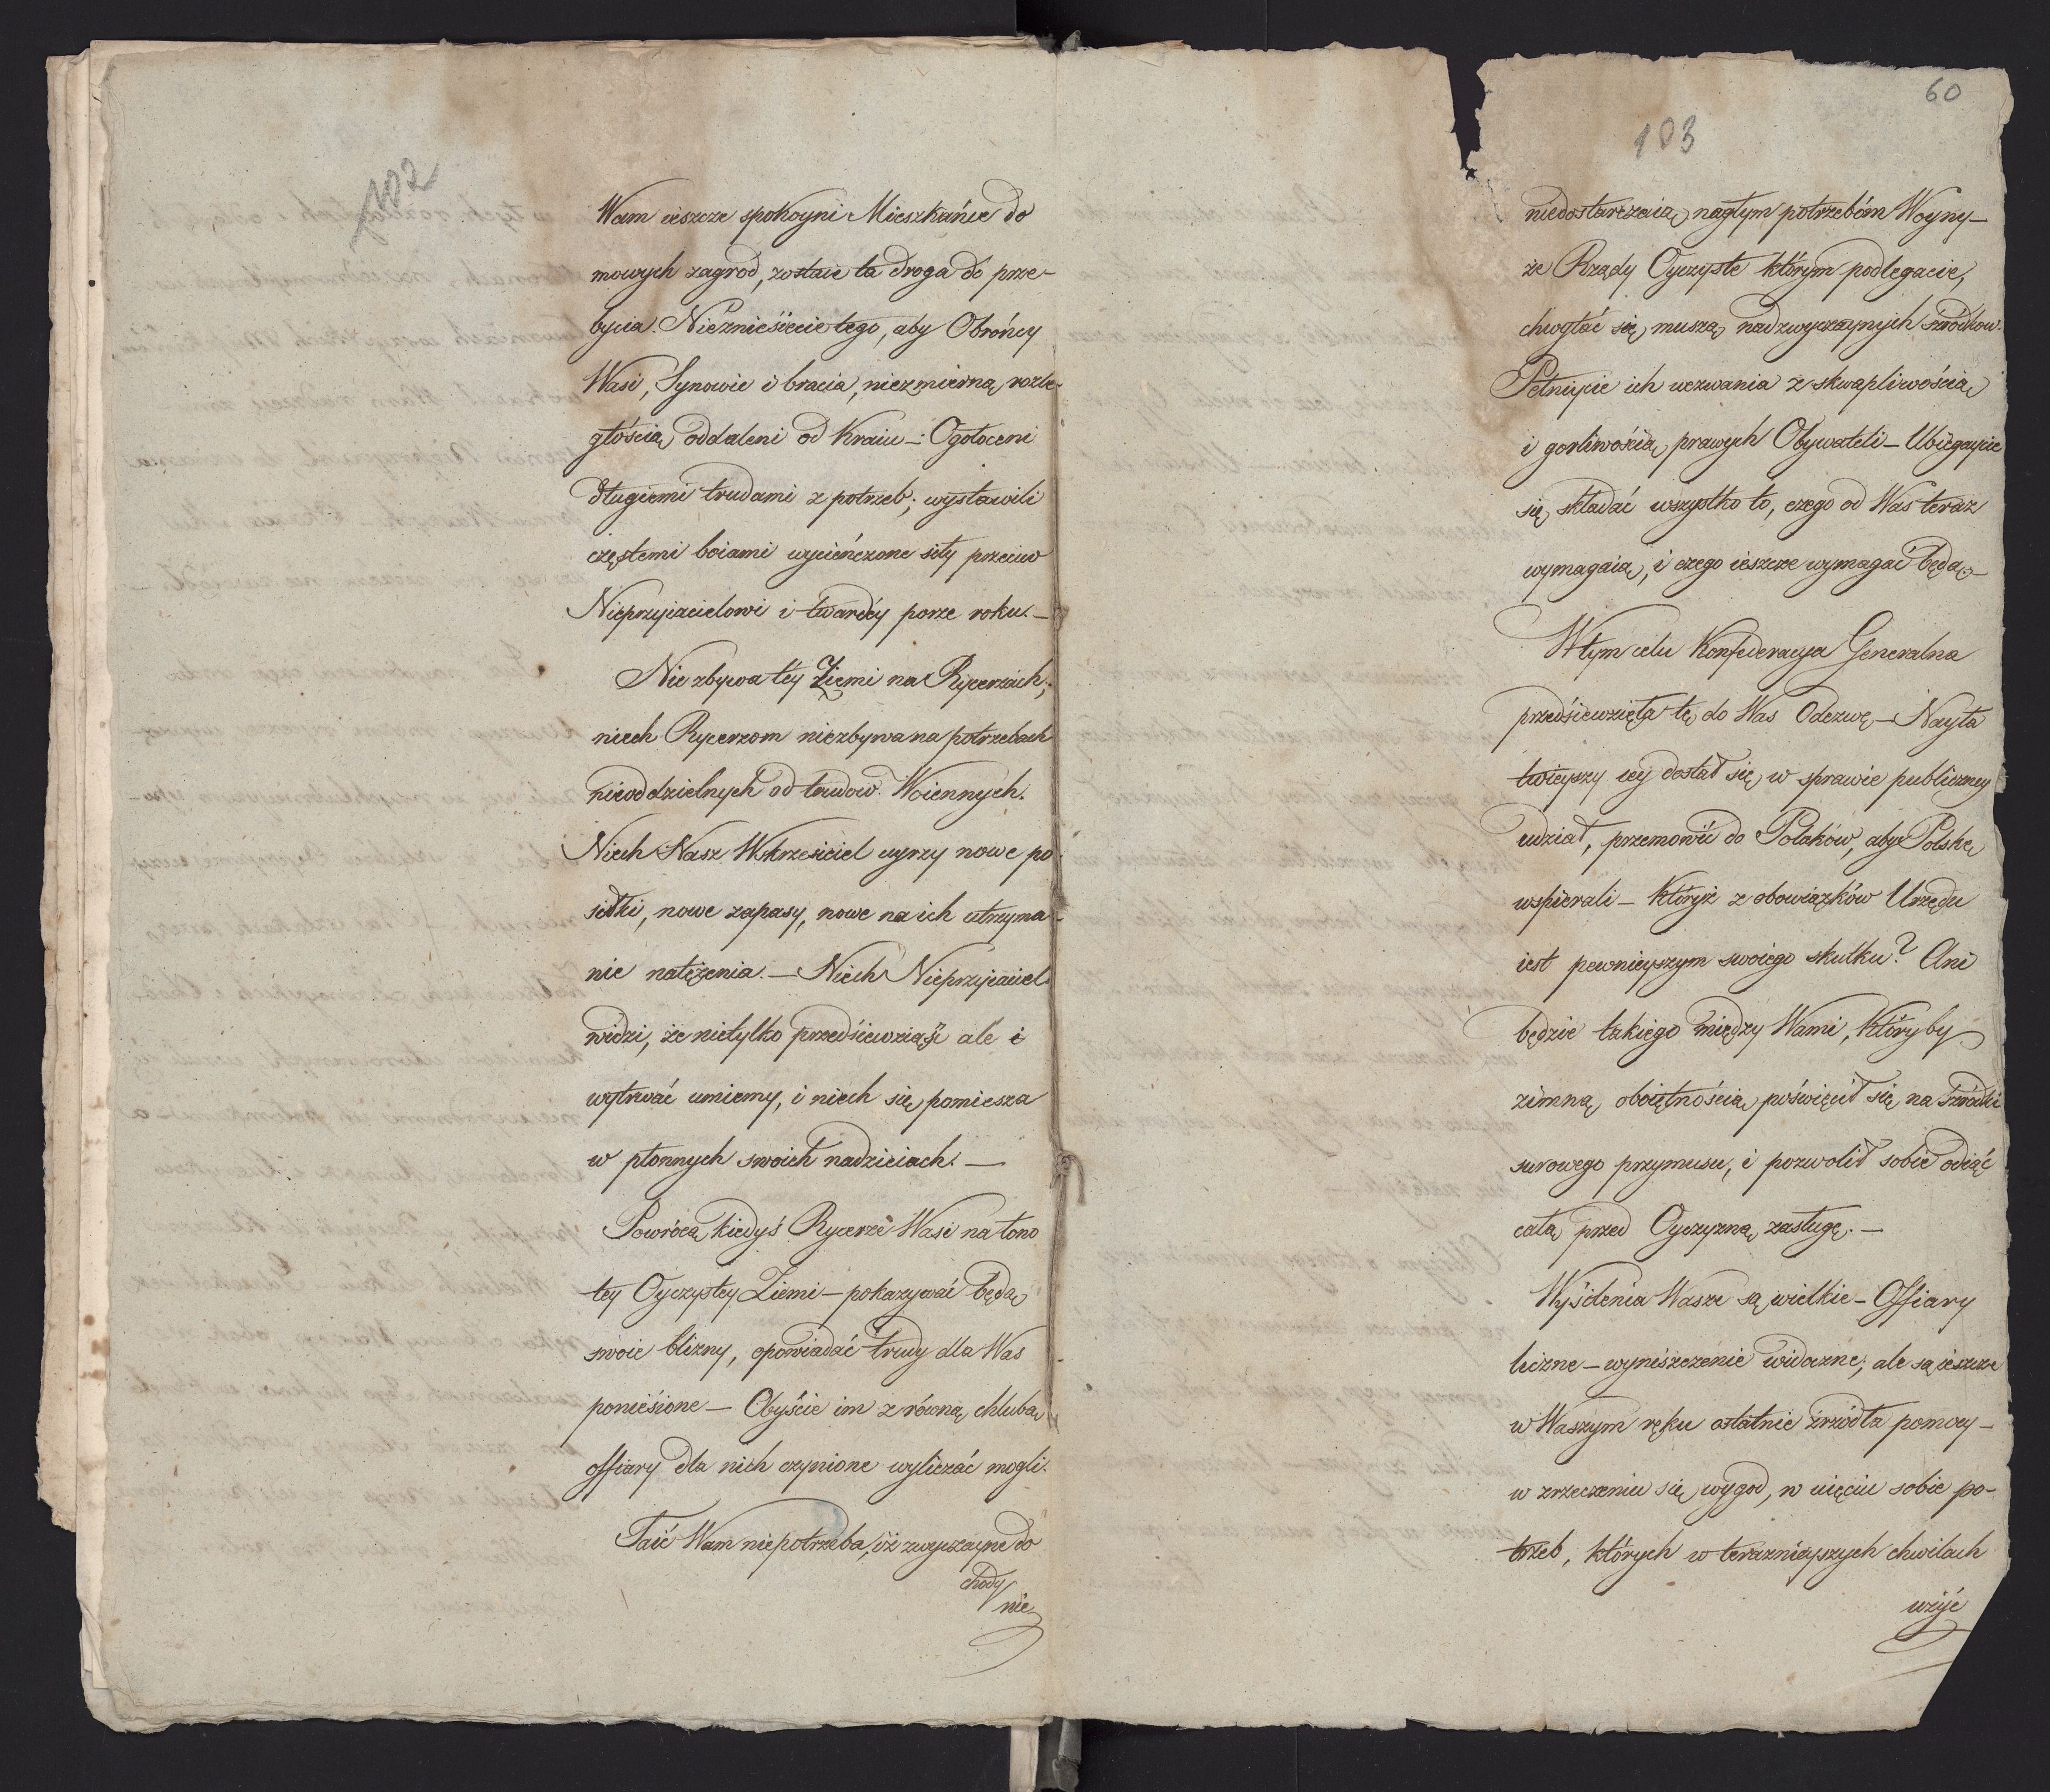 102
Wam ieszcze spokoyni Mieszkańce do
mowych zagrod, zostaie ta droga do prze-
bycia. Nieznieściecie tego, aby Obrońcy
Wasi, Synowie i bracia, niezmierną rozle-
głością oddaleni od Kraiu –: Ogołoceni
długiemi trudami z potrzeb; wystawili
częstemi boiami wycieńczone siły przeciw
Nieprzyiacielowi i twardéy porze roku. –
Nie zbywa téy Ziemi na Rycerzach;
niech Rycerzom niezbywa na potrzebach
nieoddzielnych od trudow Woiennych.
Niech Nasz Wskrzesiciel uyrzy nowe po
siłki, nowe zapasy, nowe na ich utrzyma-
nie natężenia. – Niech Nieprzyiaciel
widzi, że nietylko przedsiewziąść ale i
wytrwać umiemy, i niech się pomiesza
w płonnych swoich nadzieiach. –
Powrócą kiedyś Rycerze Wasi na łono
tey Oyczystey Ziemi – pokazywać będą
swoie blizny, opowiadać trudy dla Was
poniesione – Obyście im z równą chlubą
offiary dla nich czynione wyliczać mogli.
Taić Wam niepotrzeba, iż zwyczayne do
chody
nie
60
103
niedostarczaią nagłym potrzebóm Woyny –
że Rządy Oyczyste którym podlegacie,
chwytać się muszą nadzwyczaynych srzodkow.
Pełniycie ich wezwania z skwapliwością
i gorliwością prawych Obywateli – Ubiegaycie
się składać wszystko to, czego od Was teraz
wymagaią, i czego ieszcze wymagać będą. –
W tym celu Konfederacya Generalna
przedsiewzięła tę do Was Odezwę – Nayła
twieyszy iey dostał się w sprawie publiczney
udział, przemowić do Polaków, aby Polskę
wspierali – Któryż z obowiązków Urzędu
iest pewnieyszym swoiego skutku? Ani
będzie takiego między Wami, któryby
zimną oboiętnością poświęcił się na srzodki
surowego przymusu, i pozwolił sobie odiąć
całą przed Oyczyzną zasługę. –
Wysilenia Wasze są wielkie – Offiary
liczne – wyniszczenie widoczne; ale są ieszcze
w Waszym ręku ostatnie źrzódła pomocy –
w zrzeczeniu się wygod, w uięciu sobie po-
trzeb, których w teraznieyszych chwilach
użyć